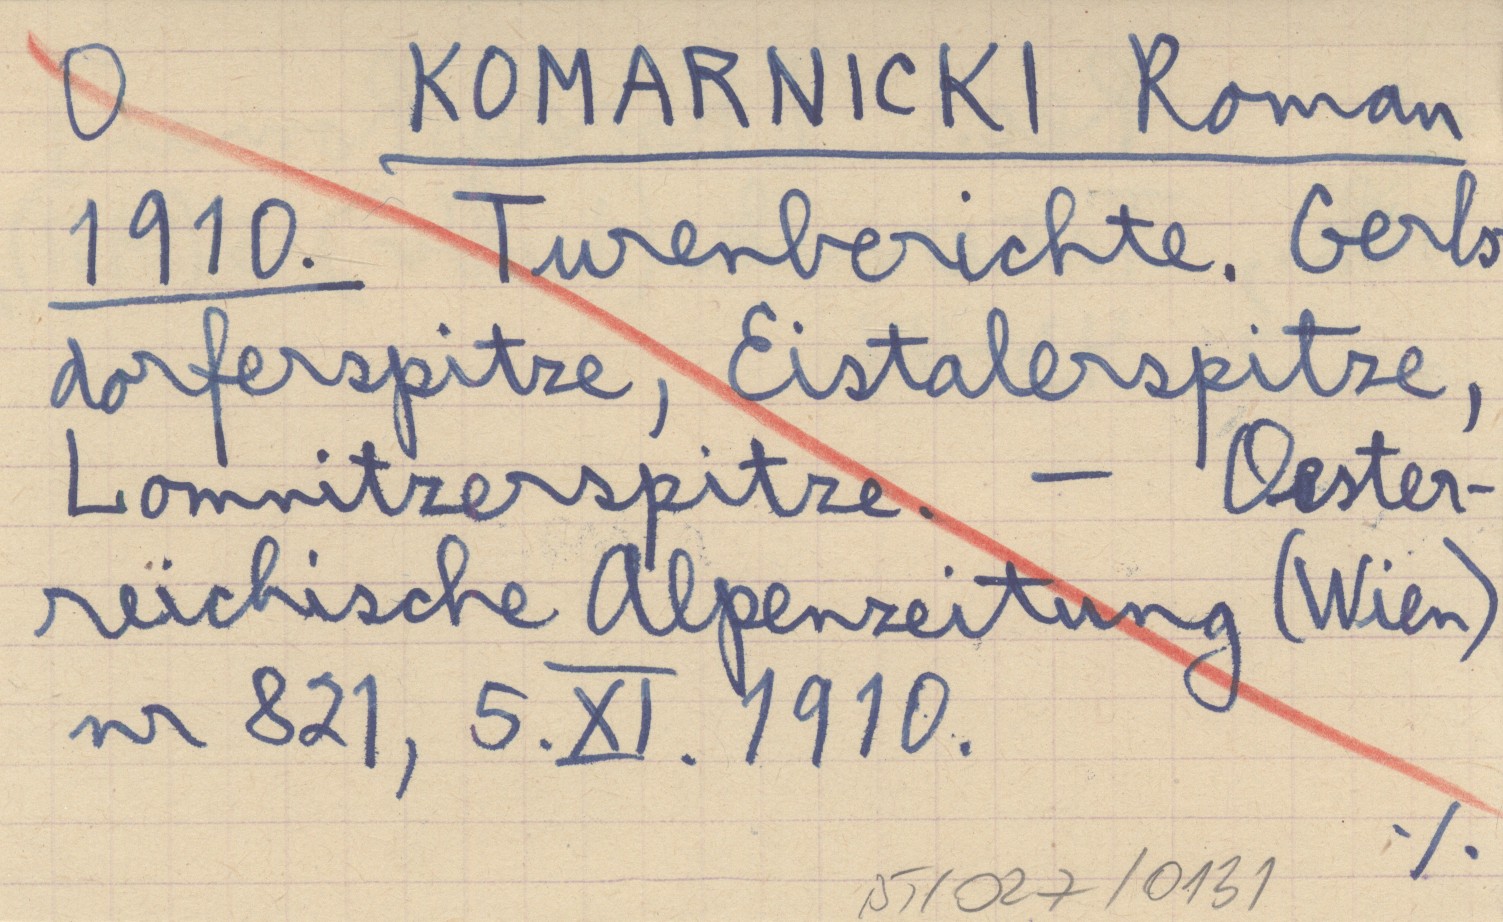 O KOMARNICKI Roman
1910. Turenberichte. Gerls
dorferspitze, Eistalerspitze,
Lomnitzerspitze. — Oester-
reichische Alpenzeitung (Wien)
nr 821, 5.XI.1910.
./.
/027/0131